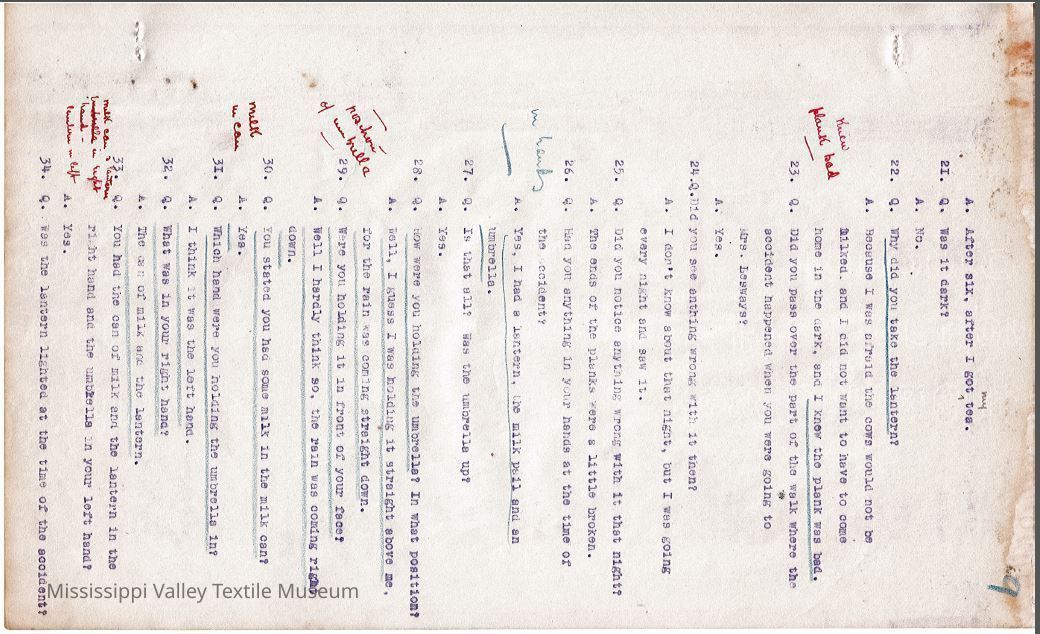 6
A. After six, after I got my tea.
21. Q. Was it dark?
A. No.
22. Q. Why did you take the lantern?
A. Because I was afraid the cows would not be
milked, and I did not want to have to come
home in the dark, and I knew the plank was bad.
knew
plank bad
23. Q. Did you pass over the part of the walk where the
accident happened when you were going to
Mrs. Lesways?
A. Yes.
24.Q.Did you see anthing wrong with it then?
A. I don't know about that night, but I was going
every night and saw it.
25. Q. Did you notice anything wrong with it that night?
A. The ends of the planks were a little broken.
26. Q. Had you anything in your hands at the time of
the accident?
in hands
A. Yes, I had a lantern, the milk pail and an
umbrella.
27. Q. Is that all? Was the umbrella up?
A. Yes.
28. Q. How were you holding the umbrella? In what position?
A. Well, I guess I was holding it straight above me,
for the rain was coming straight down.
position
of umbrella
29. Q. Were you holding it in front of your face?
A. Well I hardly think so, the rain was coming right
down.
30. Q. You stated you had some milk in the milk can?
A. Yes.
milk
in can
31. Q. Which hand were you holding the umbrella in?
A. I think it was the left hand.
32. Q. What was in your right hand?
A. The can of milk and the lantern.
33. Q. You had the can of milk and the lantern in the
right hand and the umbrella in your left hand?
A. Yes.
milk can &
umbrella in right
hand
lantern in left
34. Q. Was the lantern lighted at the time of the accident?
Mississippi Valley Textile Museum